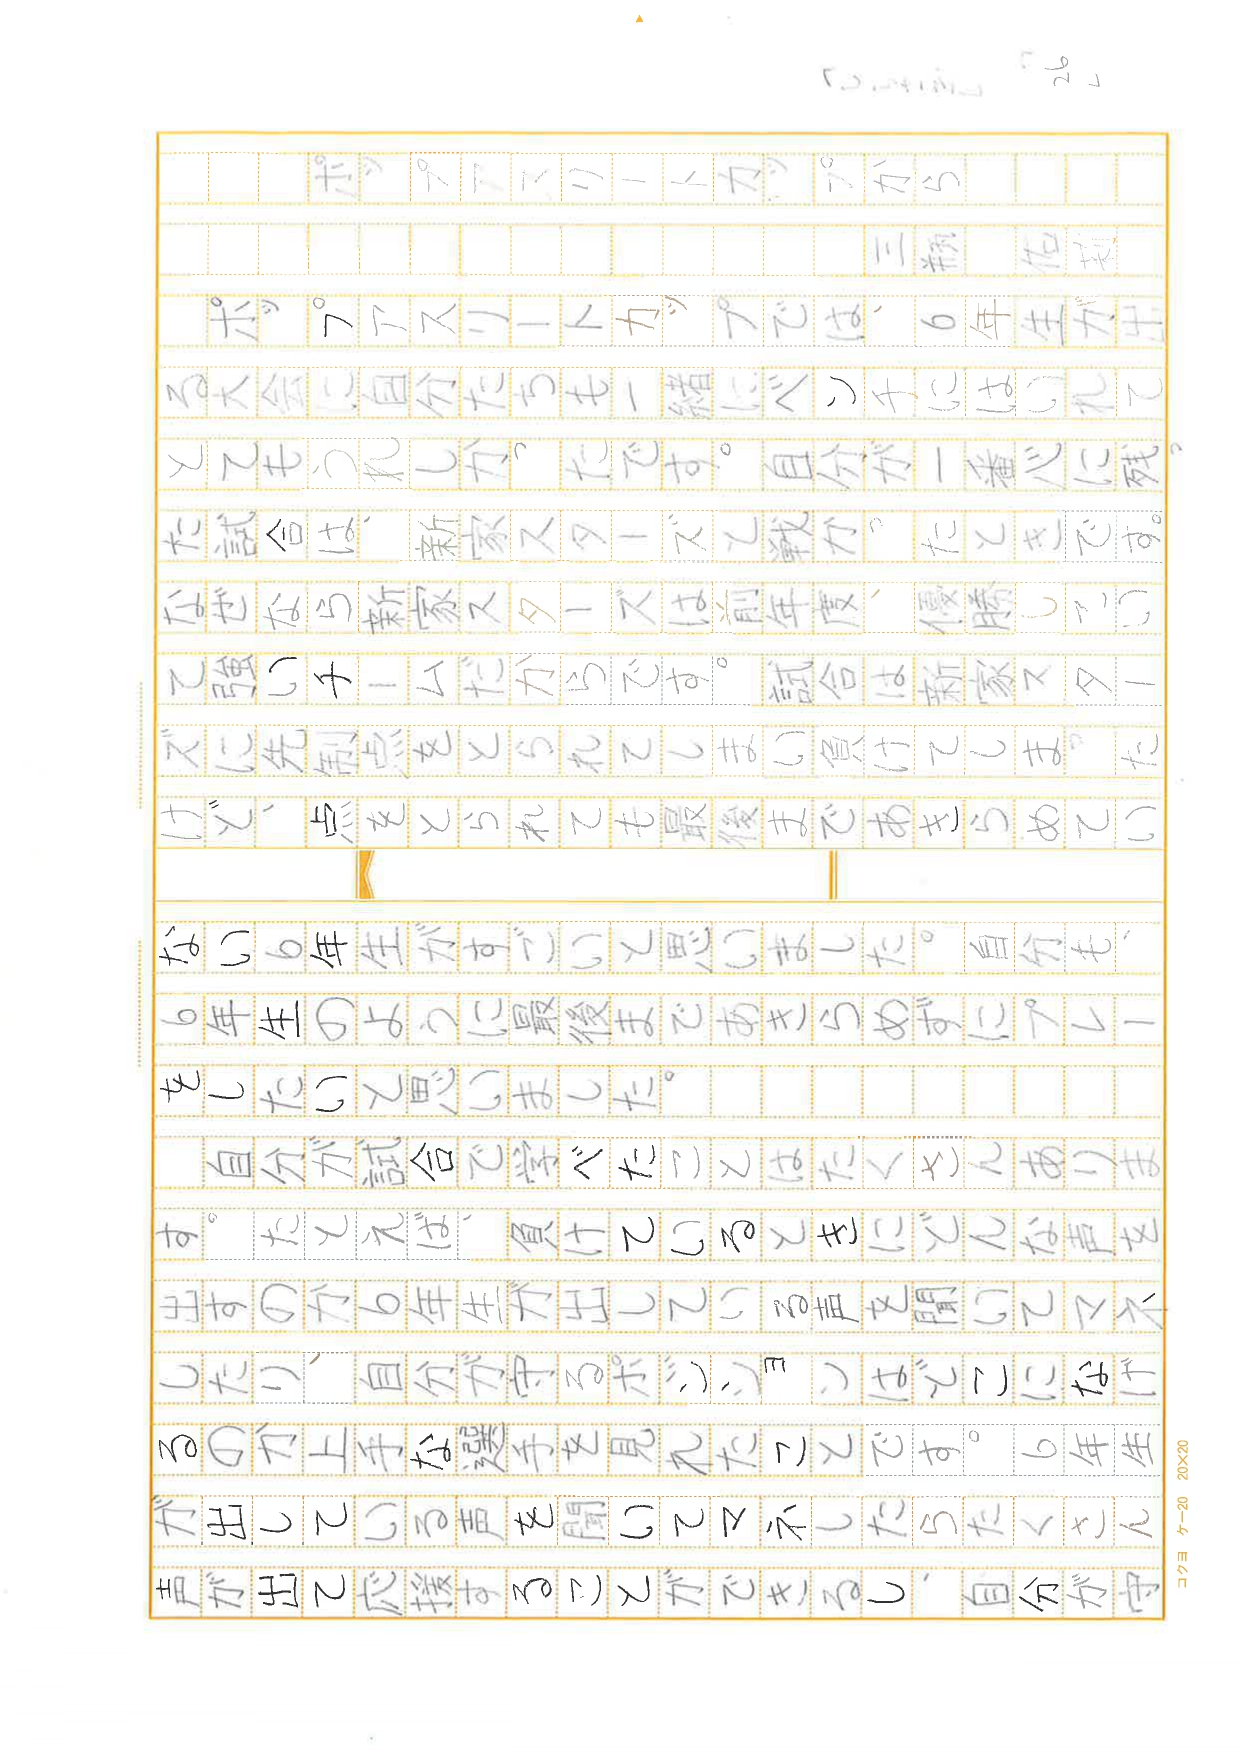 ポップアスリートカップから
三瓶　佑莉
ポップアスリートカップでは、6年生が出
る大会に自分たちも一緒にベンチにはいれて
とてもうれしかったです。自分が一番心に残っ
た試合は、新家スターズと戦かったときです。
なぜなら新家スターズは前年度、優勝しこい
て強いチームだからです。試合は新家スター
ズに先制点をとられてしまい負けてしまった
けど、点をとられても最後まであきらめてい
ない6年生がすごいと思いました。自分も、
6年生のように最後まであきらめずにプレー
をしたいと思いました。
自分が試合で学べたことはたくさんありま
す。たとえば、負けているときにどんな声を
出すのか6年生が出している声を聞いてマネ
したり、自分が守るポジションはどこになげ
るのか上手な選手を見れたことです。6年生
が出している声を聞いてマネしたらたくさん
声が出て応援することができるし、自分が守
「26」
コクヨ　ケー20　20×20